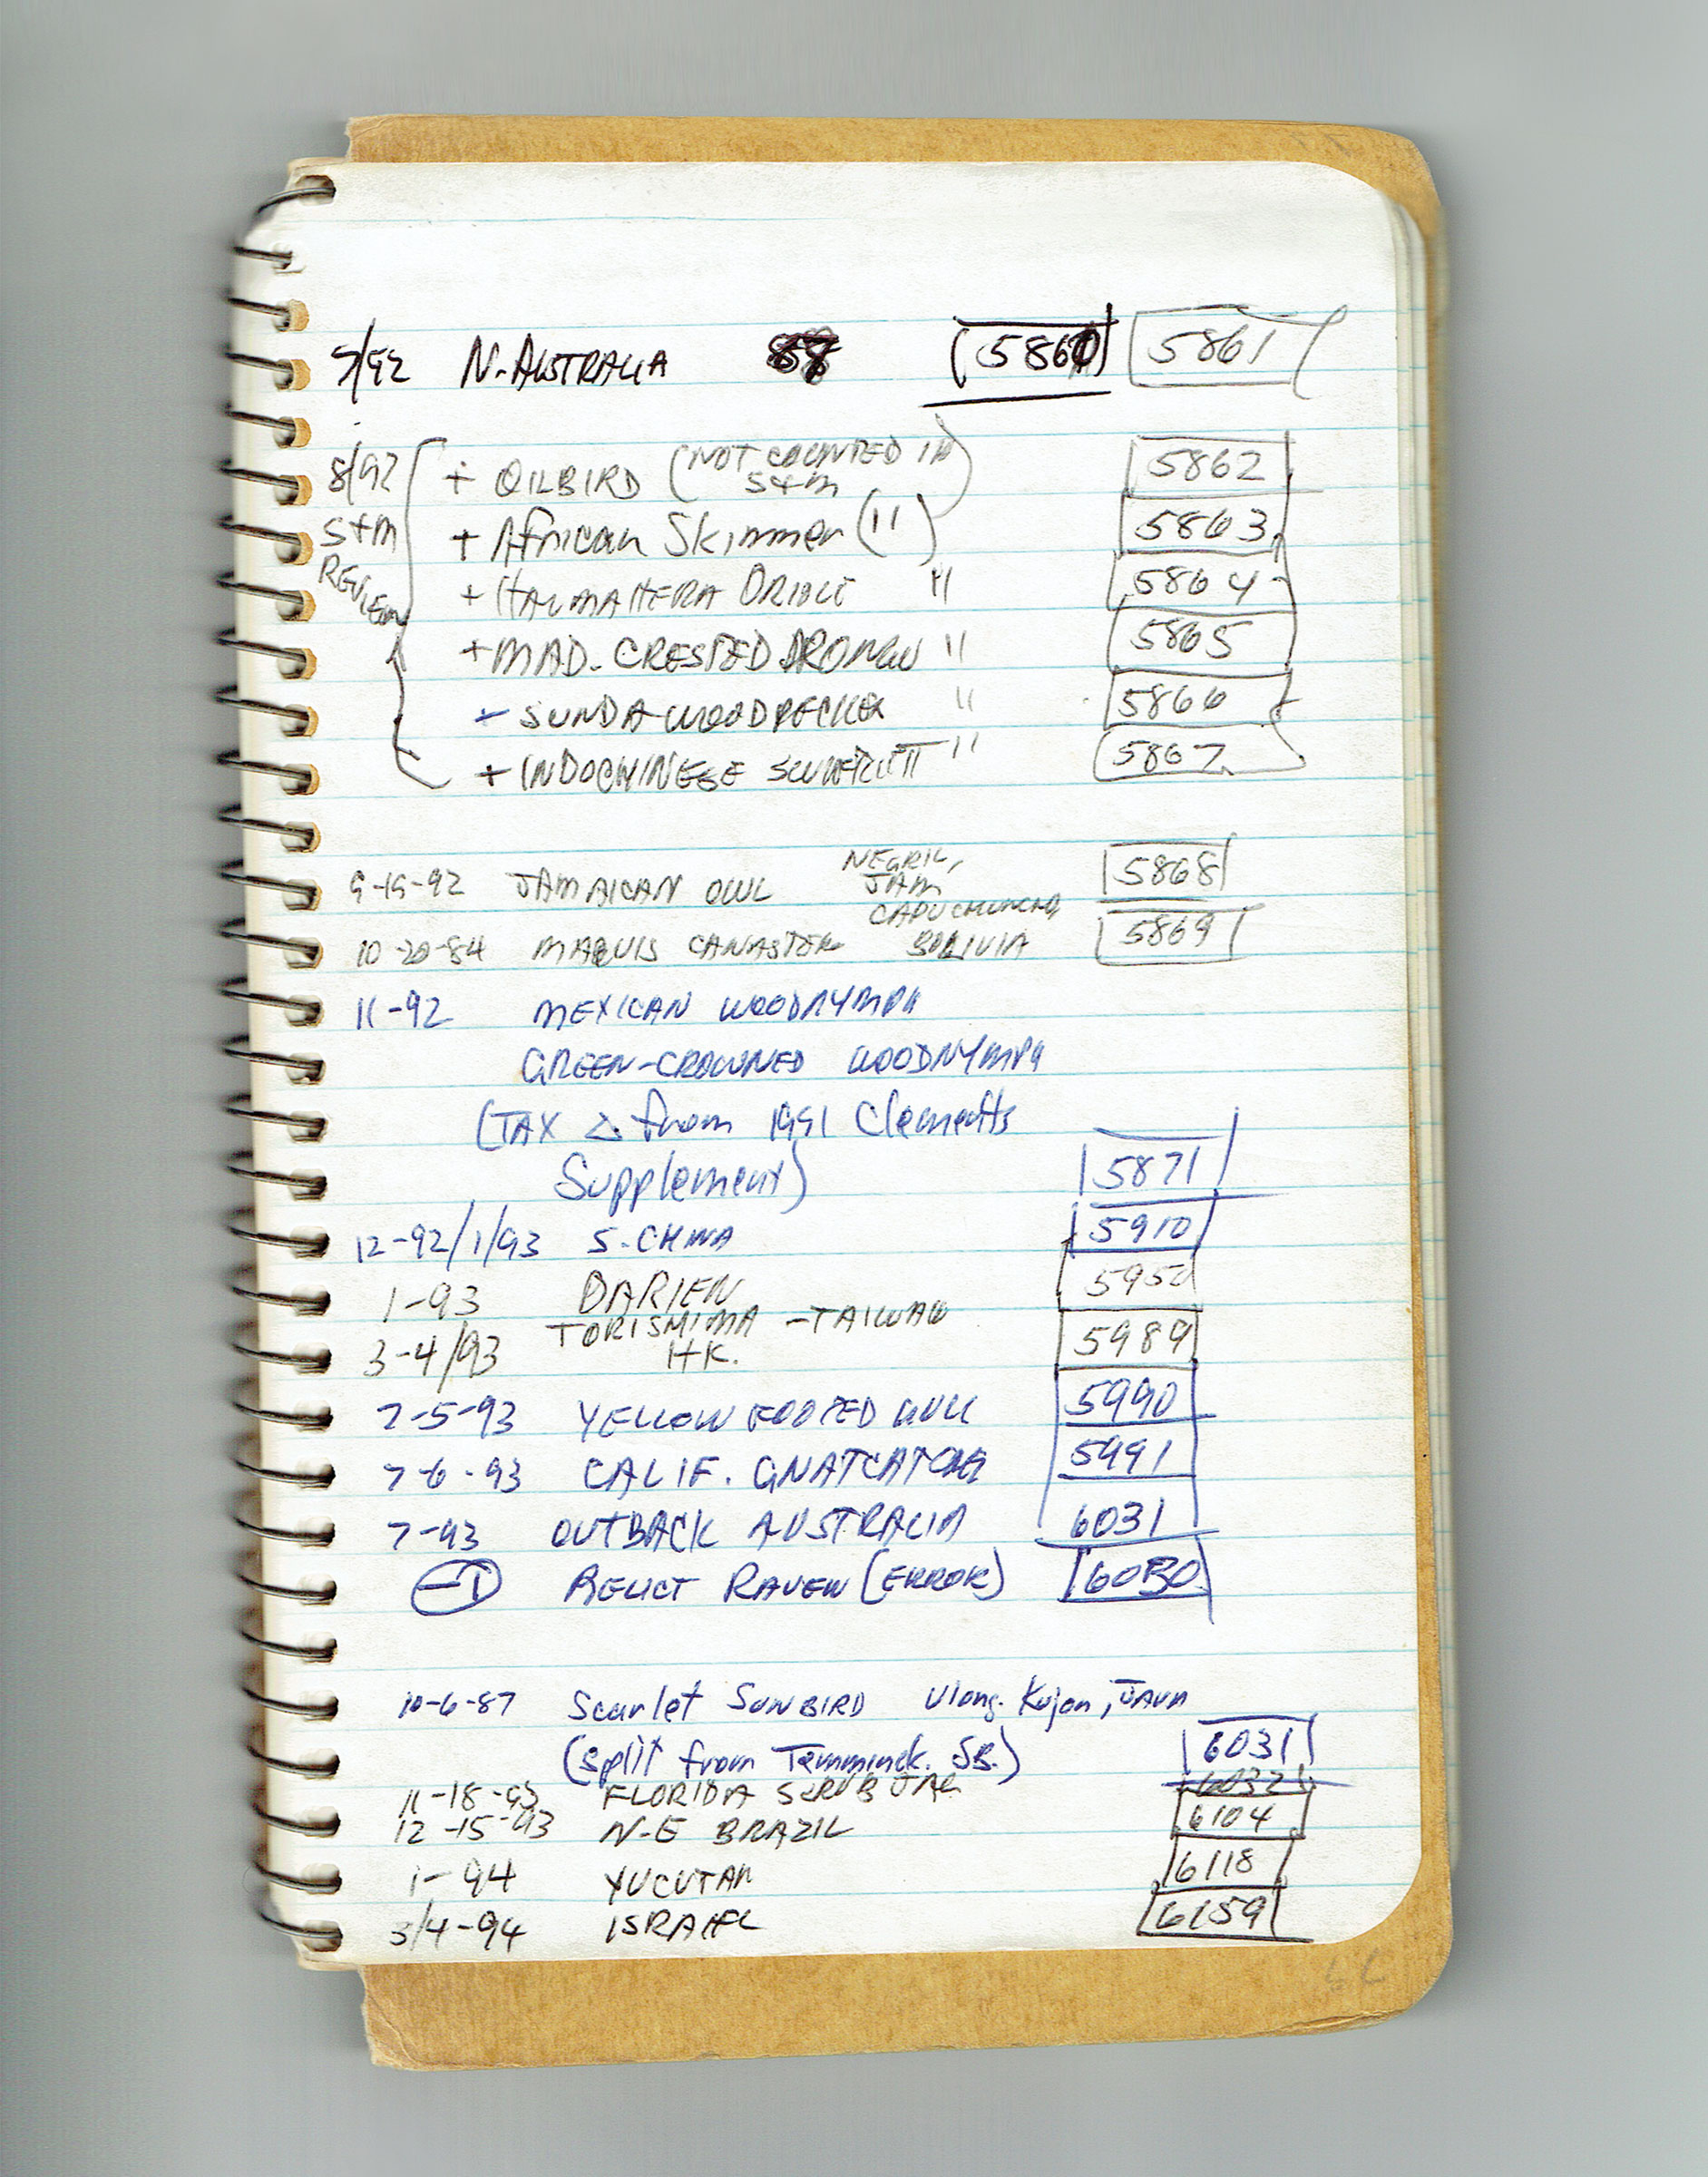 7/92 N. AUSTRALIA 5860 5861
8/92 + OILBIRD (NOT COUNTED IN S+M) 5862
S+M + African Skimmer (") 5863
REVIEW + HALMAHERA ORIOLE " 5864
+ MAD. CRESTED DRONGO " 5865
+ SUNDA WOODPECKER " 5866
+ INDOCHINESE " 5867
9-19-92 JAMAICAN OWL NEGRIL, JAM 5868
10-20-84 CANASTER BOLIVIA 5869
11-92 MEXICAN WOODNYMPH
GREEN-CROWNED WOODNYMPH
(TAX Δ from 1991 Clements
Supplement) 5871
12-92/1/93 S. CHINA 5910
1-93 DARIEN 5950
3-4/93 TORISHIMA - TAIWAN HK. 5989
7-5-93 YELLOW FOOTED GULL 5990
7-6-93 CALIF. GNATCATCHER 5991
7-93 OUTBACK AUSTRALIA 6031
-1 RELICT RAVEN (ERROR) 6030
10-6-87 Scarlet SUNBIRD Ujong. Kulon, JAVA
(split from Temminck. SB.) 6031
11-18-93 FLORIDA SCRUB JAY 6032
12-15-93 N-E BRAZIL 6104
1-94 YUCUTAN 6118
3/4-94 ISRAEL 6159